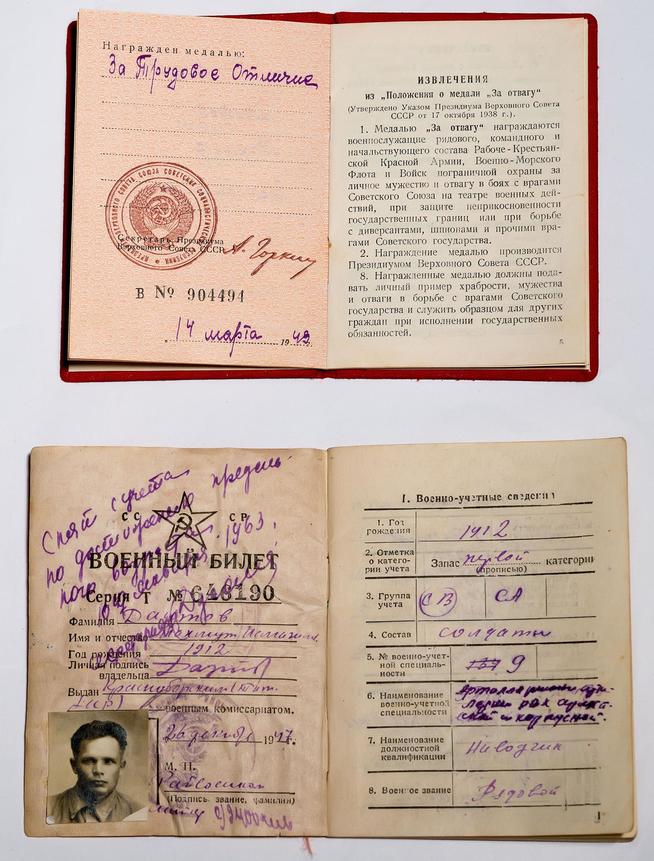 Награжден медалью:
За Трудовое Отличие
Секретарь Президиума
Верховного Совета СССР А. Горкин
В № 904494
14 марта 1949
ИЗВЛЕЧЕНИЯ
из „Положения о медали „За отвагу“
(Утверждено Указом Президиума Верховного Совета
СССР от 17 октября 1938 г.).
1. Медалью „За отвагу“ награждаются
военнослужащие рядового, командного и
начальствующего состава Рабоче-Крестьян-
ской Красной Армии, Военно-Морского
Флота и Войск пограничной охраны за
личное мужество и отвагу в боях с врагами
Советского Союза на театре военных дей-
ствий, при защите неприкосновенности
государственных границ или при борьбе
с диверсантами, шпионами и прочими вра-
гами Советского государства.
2. Награждение медалью производится
Президиумом Верховного Совета СССР.
8. Награжденные медалью должны пода-
вать личный пример храбрости, мужества
и отваги в борьбе с врагами Советского
государства и служить образцом для других
граждан при исполнении государственных
обязанностей.
5
Снят с учета
по достижении предель-
ного возраста
1963 г.
СС СР
ВОЕННЫЙ БИЛЕТ
Серия Т № 648190
Фамилия
Имя и отчество
Год рождения 1912
Личная подпись
владельца
Выдан
военным комиссариатом.
26 1947 г.
М. П.
(Подпись, звание, фамилия)
I. Военно-учетные сведения
1. Год
рождения 1912
2. Отметка
о катего-
рии учета Запас первой категории
(прописью)
3. Группа
учета СВ СА
4. Состав солдаты
5. № военно-учет-
ной специаль-
ности 9
6. Наименование
военно-учетной
специальности
7. Наименование
должностной
квалификации Наводчик
8. Военное звание Рядовой
1